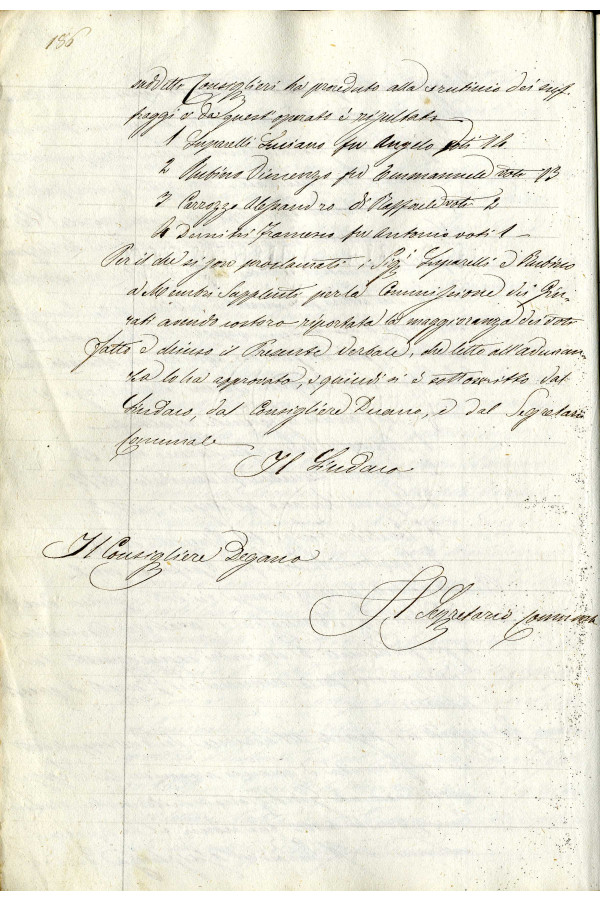 186
suddetto Consiglieri ha proceduto allo scrutinio dei suf-
fragi e da quest'operato è risultato
1 Luparelli Luciano fu Angelo voti 14
2 Rubino Vincenzo fu Emmanuele voti 13
3 Carrozzo Alessandro di Raffaele voti 2
4 Dimitri Francesco fu Antonio voti 1
Per il che si sono proclamati i Sigi Luparelli e Rubino
a Membri Supplenti per la Commissione dei Giu-
rati avendo costoro riportata la maggioranza dei voti
Fatto e chiuso il Presente Verbale, che letto all'adunan-
za lo ha approvato, e quindi si è sottoscritto dal
Sindaco, dal Consigliere Decano, e dal Segretario
Comunale
Il Sindaco
Il Consigliere Degano
Il Segretario Comunale